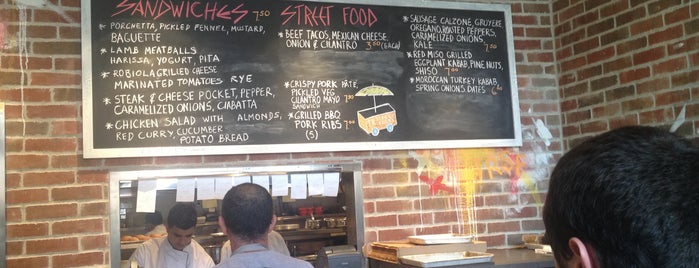 SANDWICHES 7.50
* PORCHETTA, PICKLED FENNEL, MUSTARD,
BAGUETTE
* LAMB MEATBALLS
HARISSA, YOGURT, PITA
* ROBIOLA GRILLED CHEESE
MARINATED TOMATOES RYE
* STEAK & CHEESE POCKET, PEPPER,
CARAMELIZED ONIONS, CIABATTA
* CHICKEN SALAD WITH ALMONDS,
RED CURRY, CUCUMBER
POTATO BREAD
STREET FOOD
* BEEF TACOS, MEXICAN CHEESE,
ONION & CILANTRO 3.50 (EACH)
* CRISPY PORK PÂTÉ,
PICKLED VEG
CILANTRO MAYO 7.00
SANDWICH
* GRILLED BBQ
PORK RIBS 7.00
(5)
* SAUSAGE CALZONE, GRUYERE
OREGANO, ROASTED PEPPERS,
CARAMELIZED ONIONS,
KALE 7.50
* RED MISO GRILLED
EGGPLANT KABAB, PINE NUTS,
SHISO 7.00
* MOROCCAN TURKEY KABAB
SPRING ONIONS, DATES